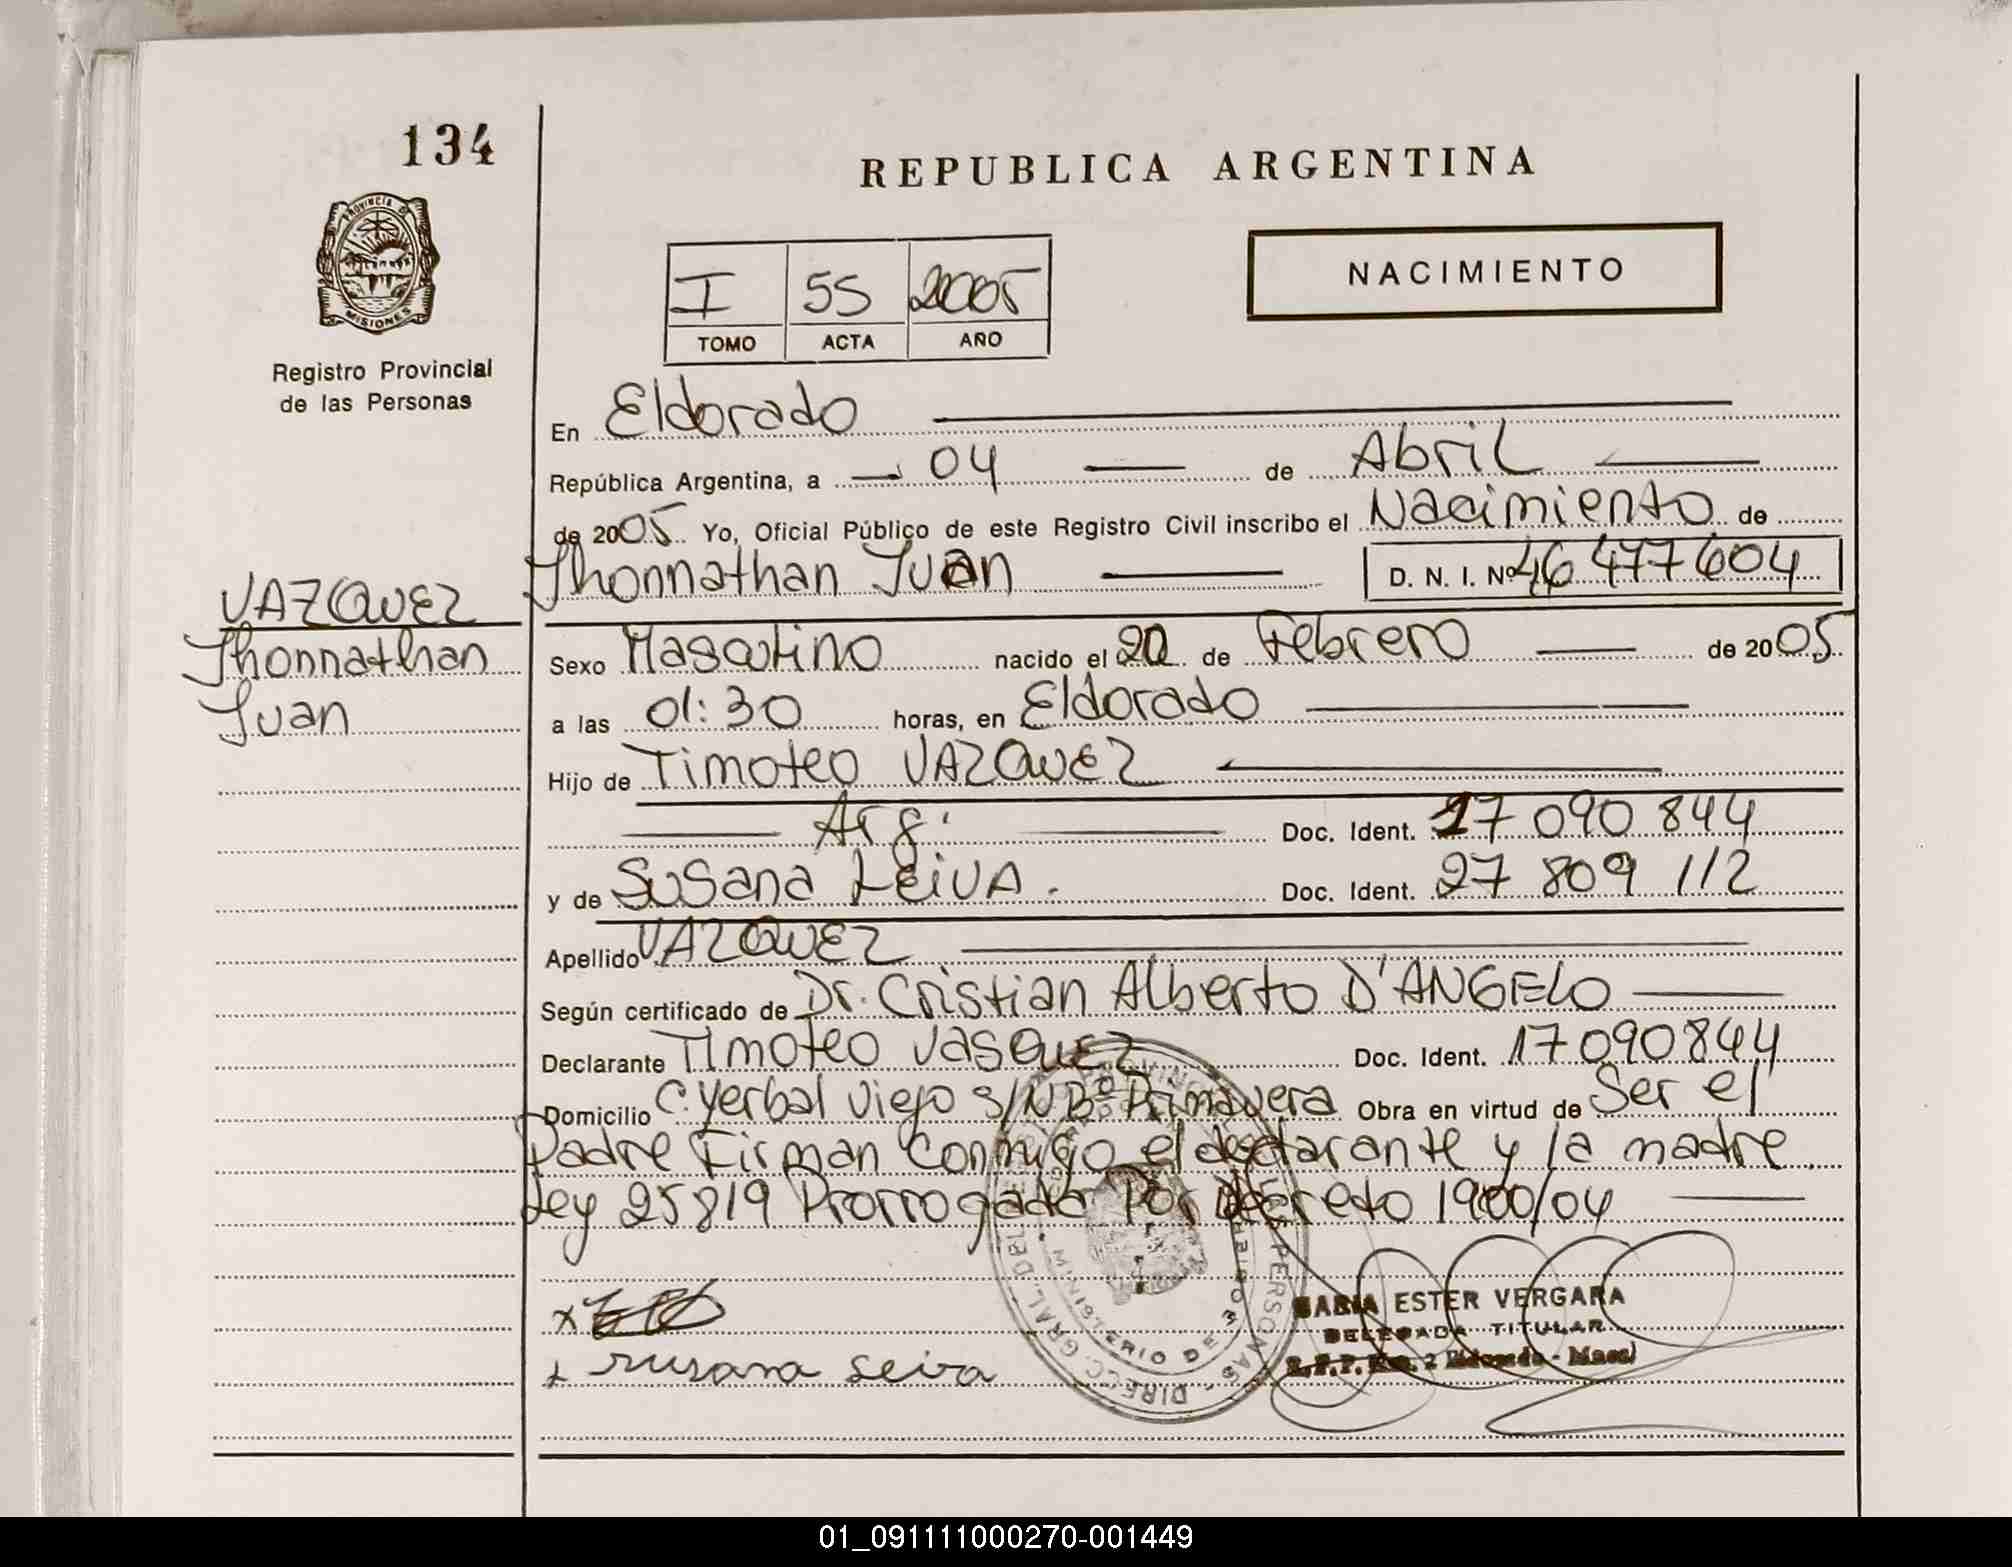 134
REPUBLICA ARGENTINA
PROVINCIA DE
MISIONES
NACIMIENTO
I 55 2005
TOMO ACTA AÑO
Registro Provincial
de las Personas
En Eldorado
República Argentina, a 04 de Abril
de 2005 Yo, Oficial Público de este Registro Civil inscribo el Nacimiento de
Jhonnathan Juan D. N. I. Nº 46 477 604
VAZQUEZ
Jhonnathan
Juan
Sexo Masculino nacido el 20 de Febrero de 2005
a las 01:30 horas, en Eldorado
Hijo de Timoteo VAZQUEZ
Arg. Doc. Ident. 17 090 844
y de Susana LEIVA. Doc. Ident. 27 809 112
Apellido VAZQUEZ
Según certificado de Dr. Cristian Alberto D'ANGELO
Declarante Timoteo VASQUEZ Doc. Ident. 17 090 844
Domicilio C. Yerbal Viejo S/N Bº Primavera Obra en virtud de Ser el
Padre Firman conmigo el declarante y la madre
Ley 25819 Prorrogada Por Decreto 1900/04
ESTER VERGARA
DELEGADA TITULAR
x Susana Leiva
01_091111000270-001449